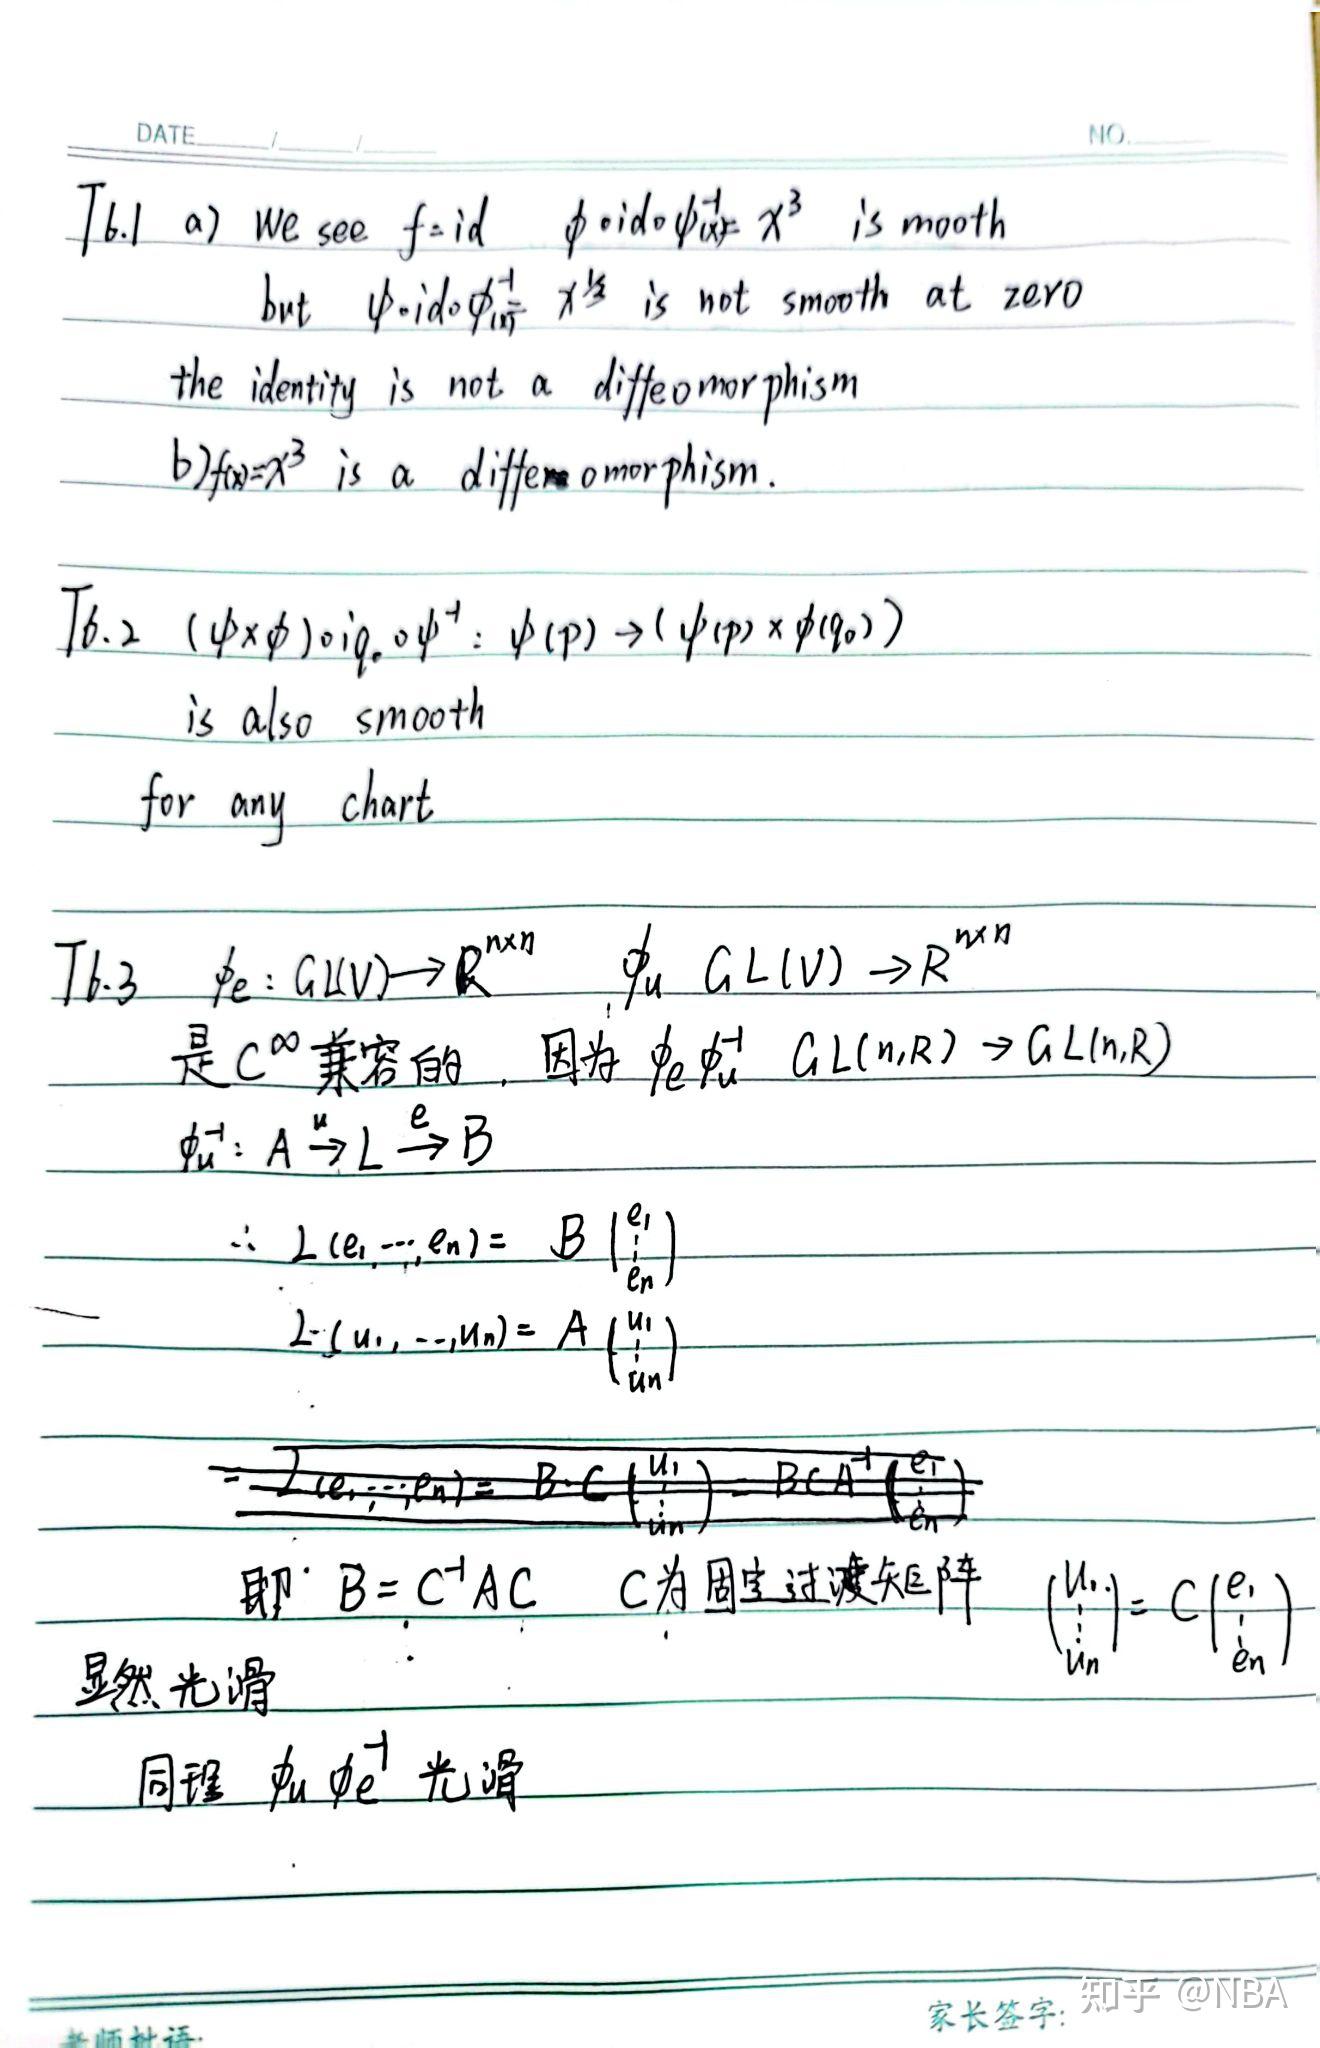 DATE / /
NO.
T6.1 a) We see f=id ϕ∘id∘ψ⁻¹(x)= x³ is mooth
but ψ∘id∘ϕ⁻¹(x)= x^⅓ is not smooth at zero
the identity is not a diffeomorphism
b) f(x)=x³ is a diffeomorphism.
T6.2 (ψ×ϕ)∘iq₀∘ψ⁻¹: ψ(p)→(ψ(p)×ϕ(q₀))
is also smooth
for any chart
T6.3 ϕe: GL(V)→R^{n×n} ϕu GL(V)→R^{n×n}
是C^∞兼容的, 因为 ϕeϕu⁻¹ GL(n,R)→GL(n,R)
ϕu⁻¹: A →^u L →^e B
∴ L(e₁, ⋯, en)= B (e₁ ⋮ en)
L(u₁, ⋯, un)= A (u₁ ⋮ un)
= L(e₁, ⋯, en)= B·C (u₁ ⋮ un) = BCA⁻¹ (e₁ ⋮ en)
即 B=C⁻¹AC C为固定过渡矩阵 (u₁ ⋮ un) = C (e₁ ⋮ en)
显然光滑
同理 ϕuϕe⁻¹ 光滑
家长签字:
知乎 @NBA
老师批语: